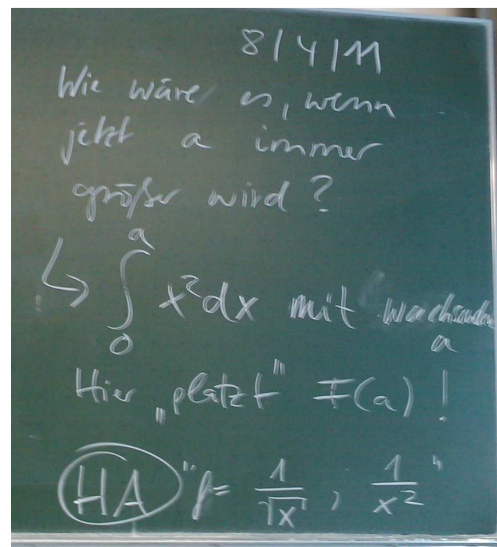 8/4/11
Wie wäre es, wenn
jetzt a immer
größer wird?
↳ ∫₀ᵃ x²dx mit wachsendem
a
Hier „platzt" F(a) !
HA "f= 1/√x , 1/x² "